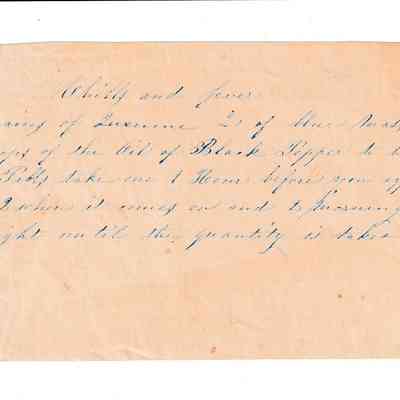 Chills and fever
of Quinine 20 of blue mass
of the Oil of Black Pepper to
Pills take one 1 Hour before you
when it comes on and to morning
until the quantity is taken